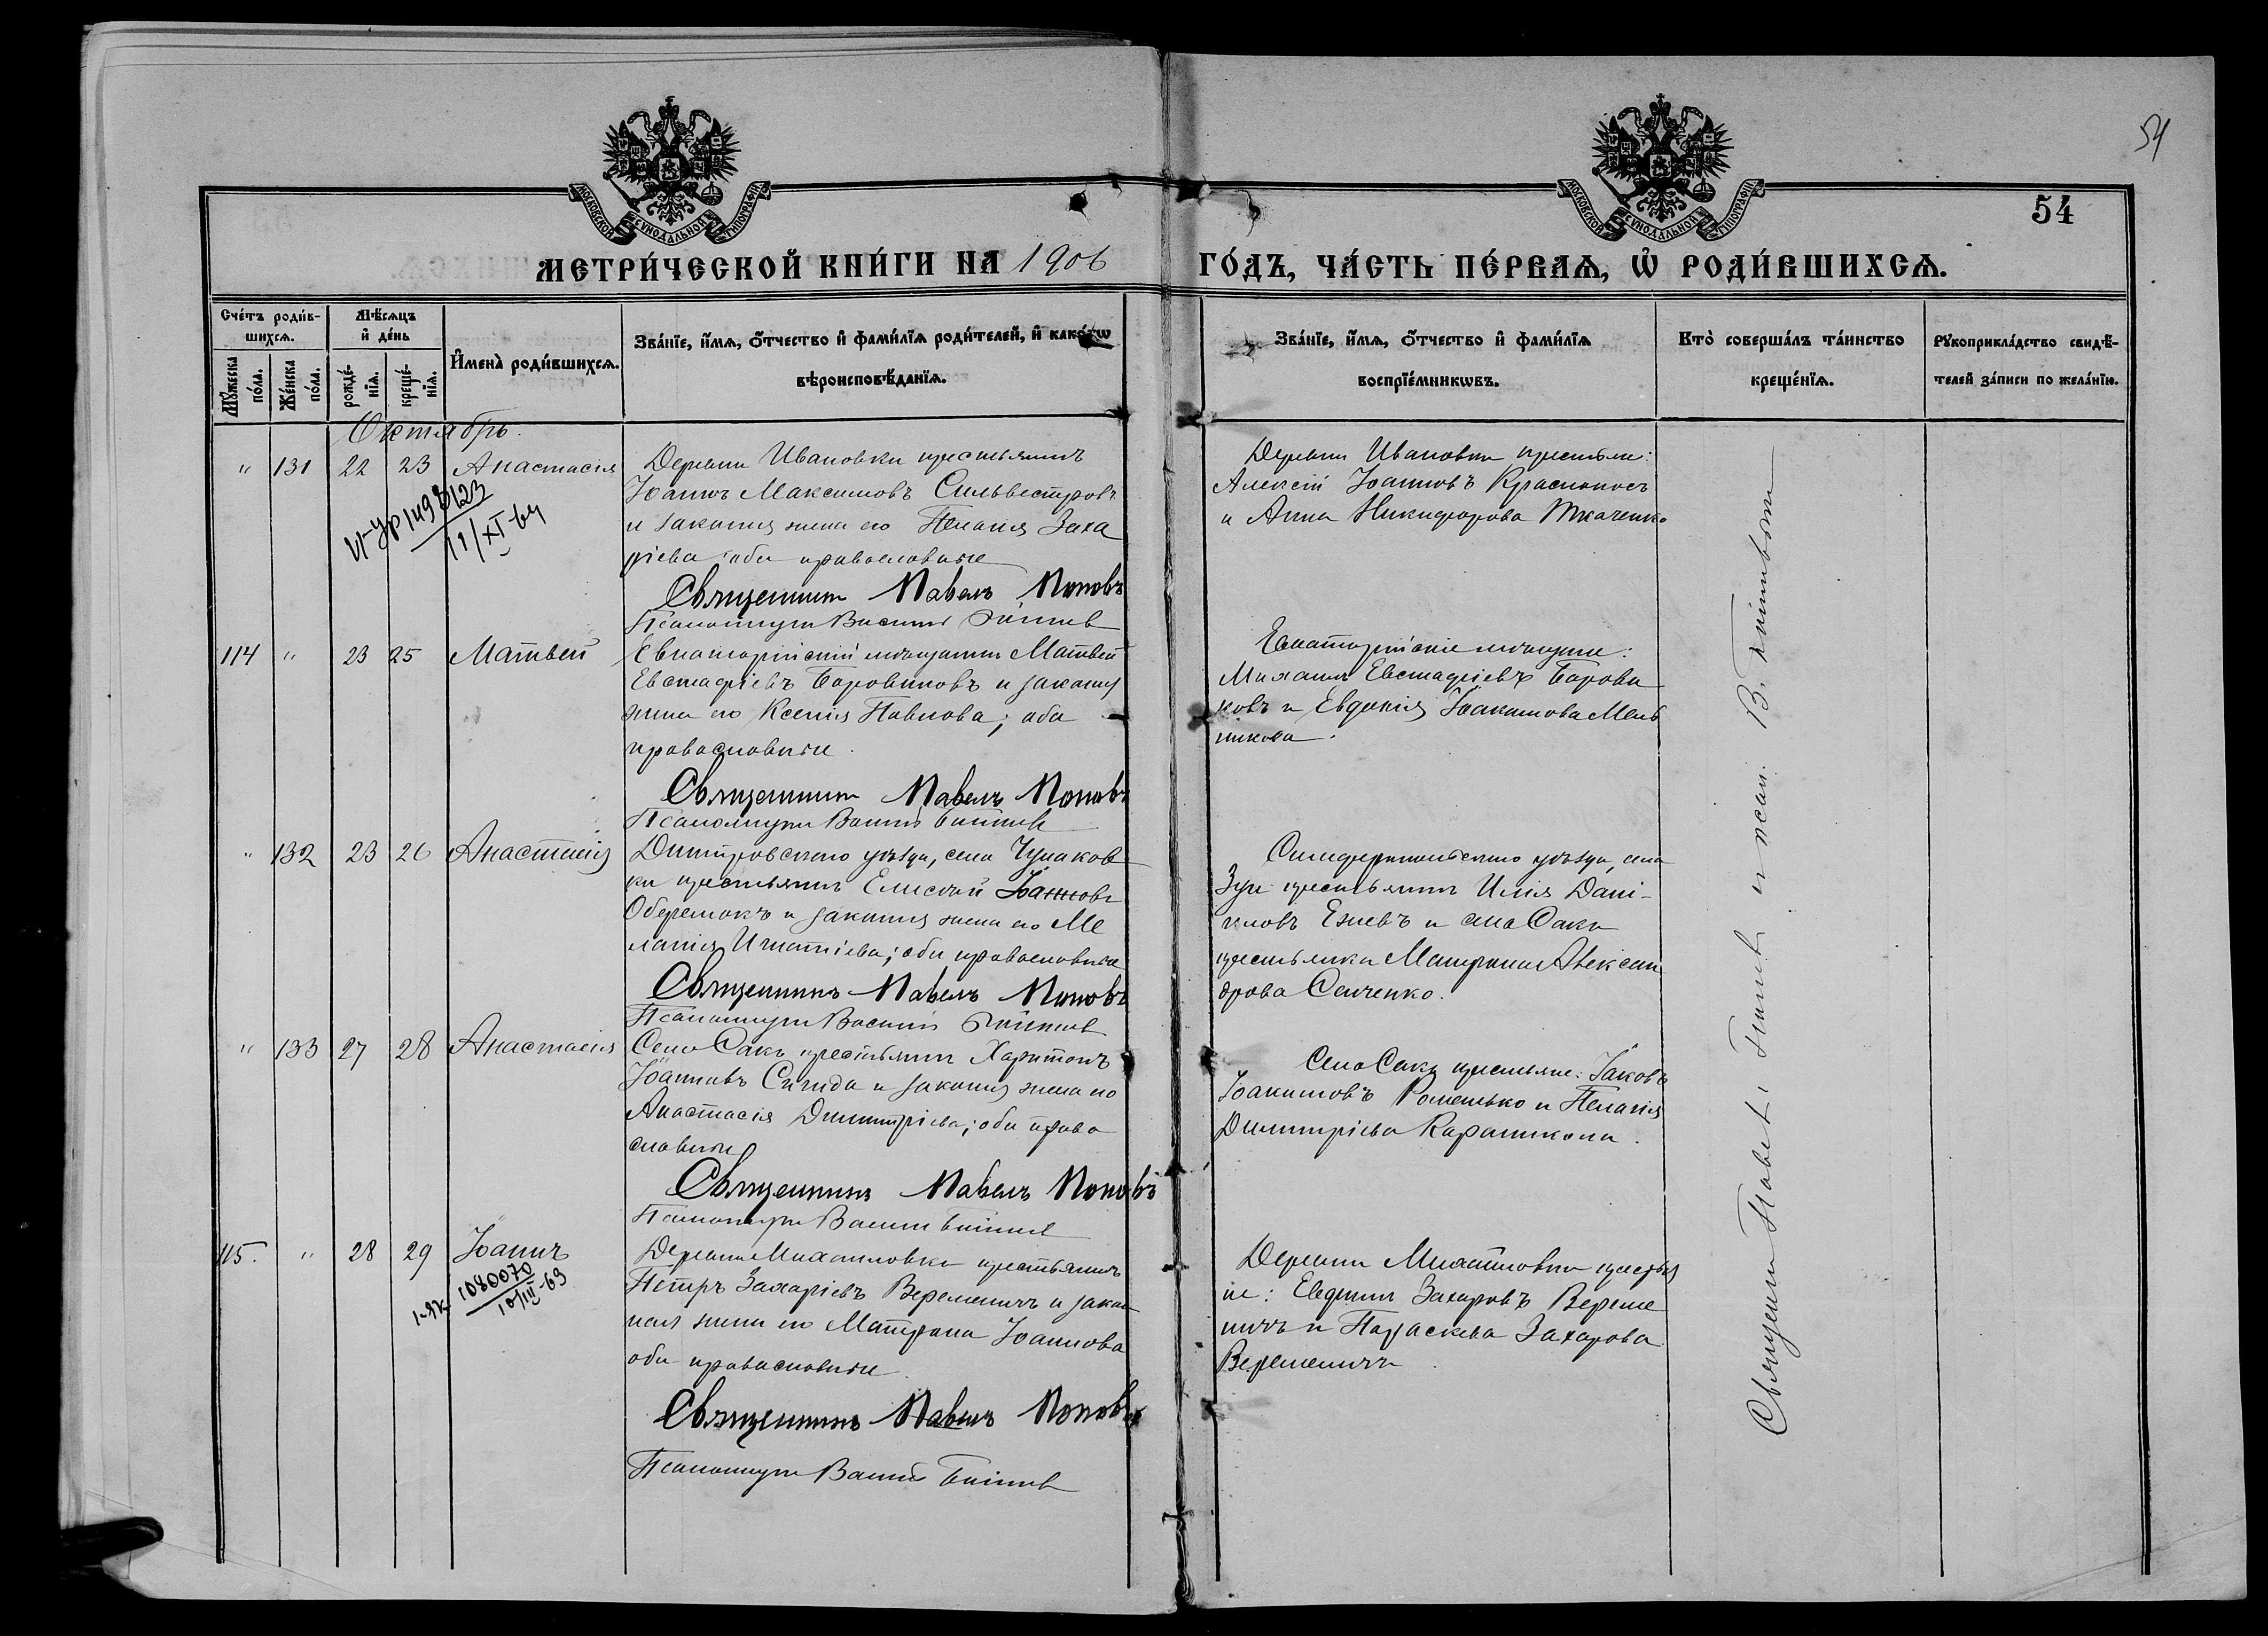 54
54
МОСКОВСКОЙ СУНОДАЛЬНОЙ ТИПОГРАФІИ
МОСКОВСКОЙ СУНОДАЛЬНОЙ ТИПОГРАФІИ
МЕТРИ́ЧЕСКОЙ КНИ́ГИ НА 1906 ГО́ДЪ, ЧА́СТЬ ПЕ́РВАѦ, Ѡ҆ РОДИ́ВШИХСѦ.
Сче́тъ роди́в-
шихсѧ.
Мѣ́сѧцъ
и҆ де́нь
Мꙋ́жеска по́ла.
Же́нска по́ла.
рожде́-нїѧ.
креще́-нїѧ.
И҆мена̀ роди́вшихсѧ.
Зва́нїе, и҆́мѧ, ѻ҆́тчество и҆ фами́лїѧ роди́телей, и҆ како́гѡ
вѣроисповѣ́данїѧ.
Зва́нїе, и҆́мѧ, ѻ҆́тчество и҆ фами́лїѧ
воспрїе́мникѡвъ.
Кто̀ соверша́лъ та́инство
креще́нїѧ.
Рꙋкоприкла́дство свидѣ́-
телей за́писи по жела́нїю.
Октябрь.
" 131 22 23 Анастасія
11/XI-64
Деревни Ивановки крестьянинъ
Іоаннъ Максимовъ Сильвестровъ
и законная жена его Пелагія Заха
ріева оба православные
Священникъ Павелъ Поповъ
Псаломщикъ Василій
Деревни Ивановки крестьяне:
Алексій Іоанновъ Красноносъ
и Анна Никифорова Ткаченко
114 " 23 25 Матвей
Евпаторійскій мѣщанинъ Матвей
Евстафіевъ Боровиковъ и законная
жена его Ксенія Павлова; оба
православные.
Священникъ Павелъ Поповъ
Псаломщикъ Василій
Евпаторійскіе мѣщане:
Михаилъ Евстафіевъ Борови
ковъ и Евдокія Іоакимова Мель
никова.
" 132 23 26 Анастасія
Димитровскаго уѣзда, села Чулаков
ки крестьянинъ Елисей Іоанновъ
Оберемокъ и законная жена его Ме
ланія Игнатіева; оба православные
Священникъ Павелъ Поповъ
Псаломщикъ Василій
Симферопольскаго уѣзда, села
Зуи крестьянинъ Илія Дані-
иловъ Ежевъ и села Саки
крестьянка Матрона Алексан
дрова Сенченко.
" 133 27 28 Анастасія
Село Сакъ крестьянинъ Харитонъ
Іоанновъ Сигида и законная жена его
Анастасія Димитріева; оба право
славные
Священникъ Павелъ Поповъ
Псаломщикъ Василій
Село Сакъ крестьяне: Іаковъ
Іоакимовъ Роменько и Пелагія
Димитріева
115. " 28 29 Іоаннъ
1080070
10/III-69
Деревни Михайловки крестьянинъ
Петръ Захаріевъ Веремеичъ и закон
ная жена его Матрона Іоаннова
оба православные.
Священникъ Павелъ Поповъ
Псаломщикъ Василій
Деревни Михайловки крестья
не: Евфимъ Захаровъ Вереме
ичъ и Параскева Захарова
Веремеичъ
Священникъ Павелъ Поповъ и псал. В.